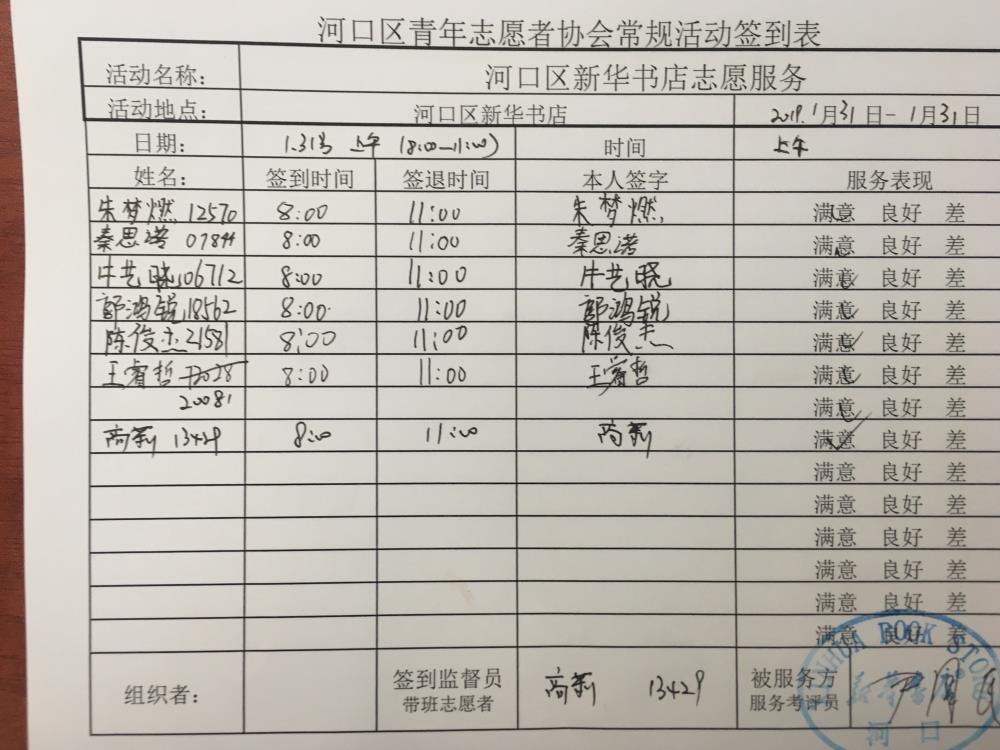 河口区青年志愿者协会常规活动签到表
活动名称： 河口区新华书店志愿服务
活动地点： 河口区新华书店 2019.1月31日－1月31日
日期： 1.31号 上午 (8:00—11:00) 时间 上午
姓名： 签到时间 签退时间 本人签字 服务表现
朱梦燃 12570 8:00 11:00 朱梦燃 满意 良好 差
秦思诺 07844 8:00 11:00 秦思诺 满意 良好 差
牛艺晓 06712 8:00 11:00 牛艺晓 满意 良好 差
郭鸿锐 18562 8:00 11:00 郭鸿锐 满意 良好 差
陈俊杰 21581 8:00 11:00 陈俊杰 满意 良好 差
王睿哲 8:00 11:00 王睿哲 满意 良好 差
20081 满意 良好 差
尚新 13429 8:00 11:00 尚新 满意 良好 差
满意 良好 差
满意 良好 差
满意 良好 差
满意 良好 差
满意 良好 差
满意 良好 差
组织者： 签到监督员 尚新 13429 被服务方
带班志愿者 服务考评员
XINHUA BOOK STO
新华书店
河口